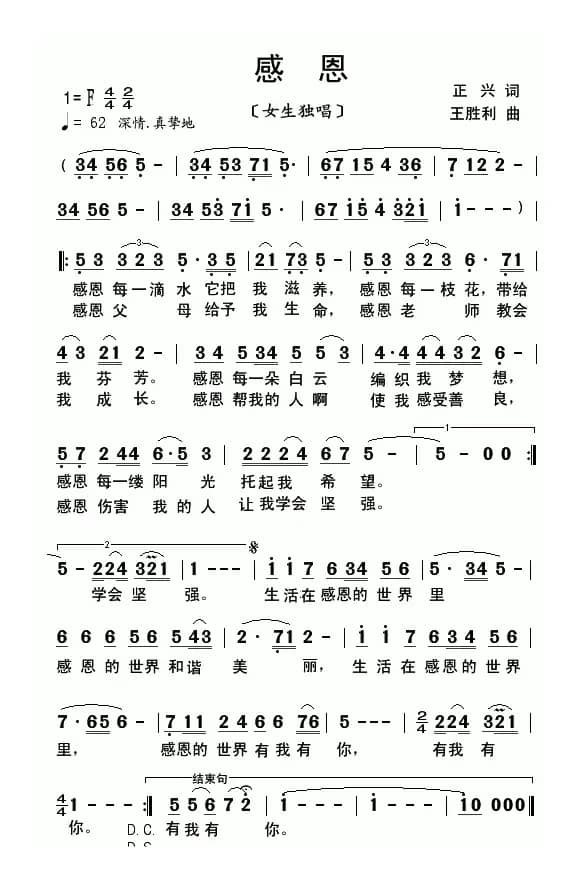 感 恩
1=F 4/4 2/4
正 兴 词
〔女生独唱〕
王胜利 曲
♩= 62 深情.真挚地
( 34 56 5 - | 34 53 71 5· | 67 15 4 36 | 7 12 2 - |
34 56 5 - | 34 53 71 5· | 67 15 4 321 | 1 - - - )
‖: 5 3 3 2 3 5· 3 5 | 21 73 5 - | 5 3 3 2 3 6· 71 |
感恩 每一滴 水 它把 我 滋 养， 感恩 每一枝 花，带给
感恩 父 母 给予 我 生 命，感恩 老 师 教会
4 3 21 2 - | 34 5 534 5 5 3 | 4·4 4432 6 - |
我 芬 芳。 感恩 每一朵 白 云 编 织 我 梦 想，
我 成 长。 感恩 帮我的 人 啊 使 我 感受善 良，
5 7 2 44 6·5 3 | 2224 67 5 - | 5 - 0 0 :‖
1
感恩 每一缕 阳 光 托起我 希 望。
感恩 伤害 我的人 让我学会 坚 强。
2
5 - 224 321 | 1 - - - | 1 17 634 56 | 5· 34 5 |
学会 坚 强。 生活在 感恩的 世 界 里
6 6 6 56 543 | 2· 71 2 | 1 1 7 634 56 |
感 恩 的 世界 和谐 美 丽， 生 活 在 感恩的 世界
7· 656 - | 7 11 24 6 6 76 | 5 - - - | 2/4 224 321 |
里， 感恩的 世界 有 我 有 你， 有我 有
结束句
4/4 1 - - - :‖ 5 5 6 7 2 | 1 - - - | 10 000 ‖
你。 D.C. 有 我 有 你。
D.S.